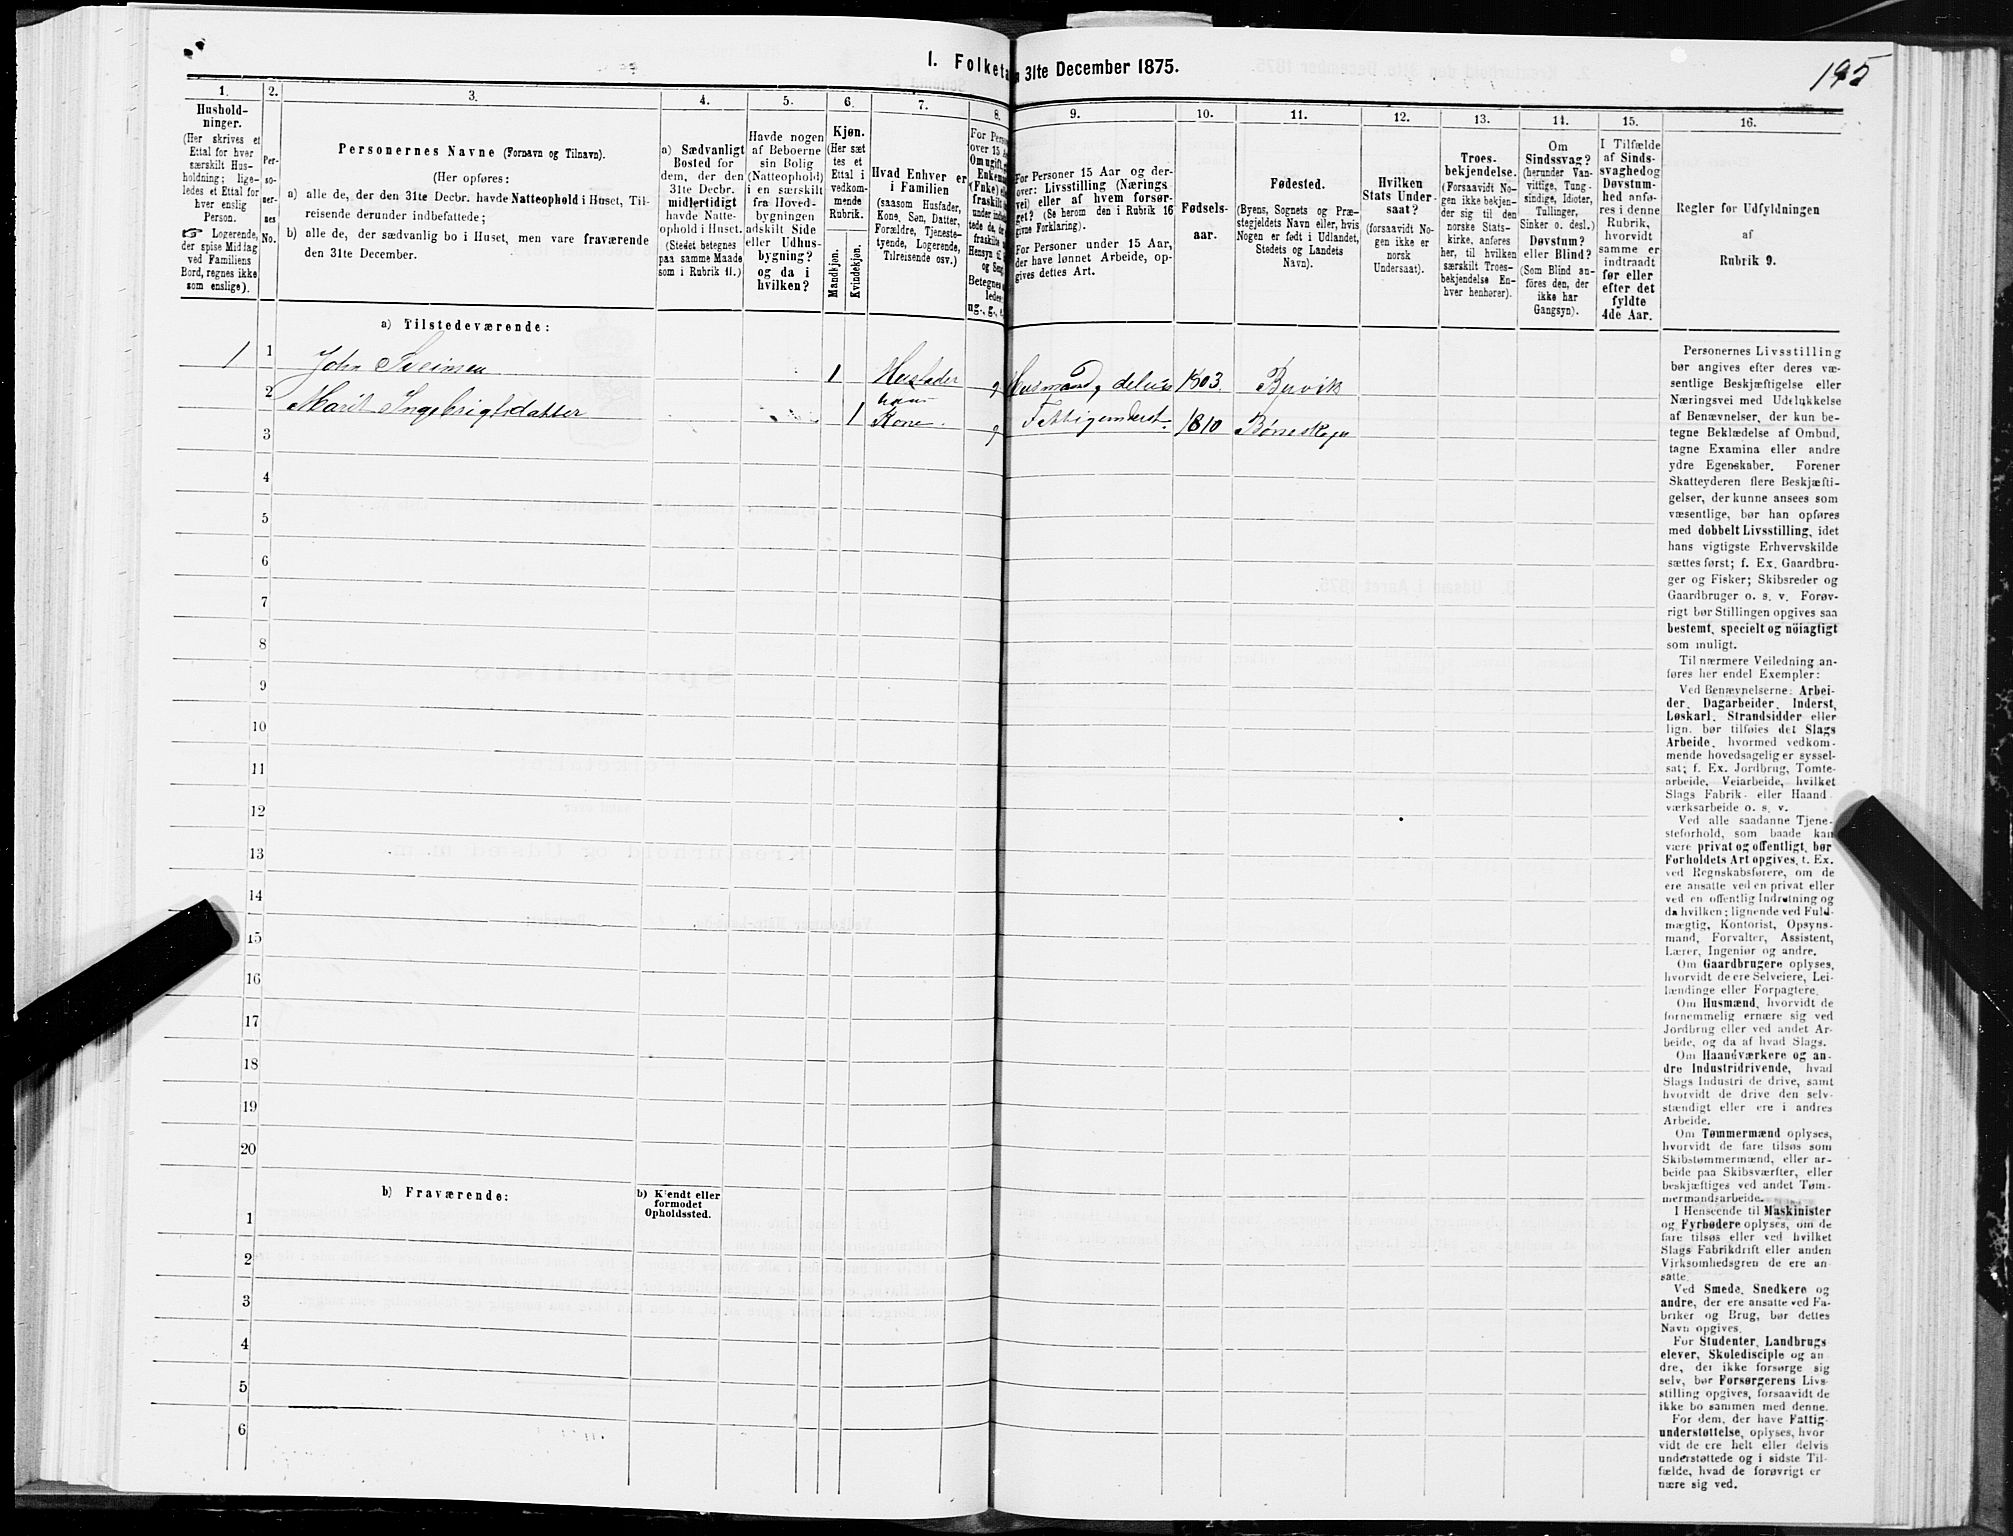 1. Folketa 31te December 1875.
195
1. 2. 3. 4. 5. 6. 7. 8. 9. 10. 11. 12. 13. 14. 15. 16.
Hushold-
ninger.
(Her skrives et
Ettal for hver
særskilt Hus-
holdning; lige-
ledes et Ettal for
hver enslig
Person.
☞ Logerende,
der spise Middag
ved Familiens
Bord, regnes ikke
som enslige).
Per-
so-
ner-
nes
No.
Personernes Navne (Fornavn og Tilnavn).
(Her opføres:
a) alle de, der den 31te Decbr. havde Natteophold i Huset, Til-
reisende derunder indbefattede;
b) alle de, der sædvanlig bo i Huset, men vare fraværende
den 31te December.
a) Sædvanligt
Bosted for
dem, der den
31te Decbr.
midlertidigt
havde Natte-
ophold i Huset.
(Stedet betegnes
paa samme Maade
som i Rubrik 11.)
Havde nogen
af Beboerne
sin Bolig
(Natteophold)
i en særskilt
fra Hoved-
bygningen
adskilt Side
eller Udhus-
bygning?
og da i
hvilken?
Kjøn.
(Her sæt
tes et
Ettal i
vedkom-
mende
Rubrik.
Mandkjøn.
Kvindekjøn.
Hvad Enhver er
i Familien
(saasom Husfader,
Kone, Søn, Datter,
Forældre, Tjeneste-
tyende, Logerende,
Tilreisende osv.)
For Perso
over 15 A
Om ugift,
Enkem
(Enke) el
fraskilt
under ind
tede de,
fraskilte
Hensyn ti
og Seng
Betegnes
ledes:
ug., g., e
For Personer 15 Aar og der-
over: Livsstilling (Nærings
vei) eller af hvem forsør-
get? (Se herom den i Rubrik 16
givne Forklaring).
For Personer under 15 Aar,
der have lønnet Arbeide, op-
gives dettes Art.
Fødsels-
aar.
Fødested.
(Byens, Sognets og Præ-
stegjeldets Navn eller, hvis
Nogen er født i Udlandet,
Stedets og Landets
Navn).
Hvilken
Stats Under-
saat?
(forsaavidt No-
gen ikke er
norsk
Undersaat).
Troes-
bekjendelse.
(Forsaavidt No-
gen ikke bekjen-
der sig til den
norske Stats-
kirke, anføres
her, til hvilken
særskilt Troes-
bekjendelse En-
hver henhører).
Om
Sindssvag?
(herunder Van-
vittige, Tung-
sindige, Idioter,
Tullinger,
Sinker o. desl.)
Døvstum?
eller Blind?
(Som Blind an-
føres den, der
ikke har
Gangsyn).
I Tilfælde
af Sinds-
svaghed og
Døvstum-
hed anfø-
res i denne
Rubrik,
hvorvidt
samme er
indtraadt
før eller
efter det
fyldte
4de Aar.
Regler for Udfyldningen
af
Rubrik 9.
a) Tilstedeværende:
1 1 John Sveinsen 1 Husfader g Husmand, delvis 1803. Bervik
2 Marit Ingebrigtsdatter 1 hans Kone. g Fattigunderst. 1810 Børneskogn
3
4
5
6
7
8
9
10
11
12
13
14
15
16
17
18
19
20
b) Fraværende:
b) Kjendt eller
formodet
Opholdssted.
1
2
3
4
5
6
Personernes Livsstilling
bør angives efter deres væ-
sentlige Beskjæftigelse eller
Næringsvei med Udelukkelse
af Benævnelser, der kun be-
tegne Beklædelse af Ombud,
tagne Examina eller andre
ydre Egenskaber. Forener
Skatteyderen flere Beskjæfti-
gelser, der kunne ansees som
væsentlige, bør han opføres
med dobbelt Livsstilling, idet
hans vigtigste Erhvervskilde
sættes først; f. Ex. Gaardbru-
ger og Fisker; Skibsreder og
Gaardbruger o. s. v. Forøv-
rigt bør Stillingen opgives saa
bestemt, specielt og nöiagtigt
som muligt.
Til nærmere Veiledning an-
føres her endel Exempler:
Ved Benævnelserne: Arbei-
der, Dagarbeider, Inderst,
Løskarl, Strandsidder eller
lign. bør tilføies det Slags
Arbeide, hvormed vedkom-
mende hovedsagelig er syssel-
sat; f. Ex. Jordbrug, Tomte-
arbeide, Veiarbeide, hvilket
Slags Fabrik- eller Haand-
værksarbeide o. s. v.
Ved alle saadanne Tjene-
steforhold, som baade kan
være privat og offentligt, bør
Forholdets Art opgives, f. Ex.
ved Regnskabsførere, om de
ere ansatte ved en privat eller
ved en offentlig Indretning og
da hvilken; lignende ved Fuld-
mægtig, Kontorist, Opsyns-
mand, Forvalter, Assistent,
Lærer, Ingeniør og andre.
Om Gaardbrugere oplyses,
hvorvidt de ere Selveiere, Lei-
lændinge eller Forpagtere.
Om Husmænd, hvorvidt de
fornemmelig ernære sig ved
Jordbrug eller ved andet Ar-
beide, og da af hvad Slags.
Om Haandværkere og an-
dre Industridrivende, hvad
Slags Industri de drive, samt
hvorvidt de drive den selv-
stændigt eller ere i andres
Arbeide.
Om Tømmermænd oplyses,
hvorvidt de fare tilsøs som
Skibstømmermænd, eller ar-
beide paa Skibsværfter, eller
beskjæftiges ved andet Tøm-
mermandsarbeide.
I Henseende til Maskinister
og Fyrbødere oplyses, om de
fare tilsøs eller ved hvilket
Slags Fabrikdrift eller anden
Virksomhedsgren de ere an-
satte.
Ved Smede, Snedkere og
andre, der ere ansatte ved Fa-
briker og Brug, bør dettes
Navn opgives.
For Studenter, Landbrugs
elever, Skoledisciple og an-
dre, der ikke forsørge sig
selv, bør Forsørgerens Livs-
stilling opgives, forsaavidt de
ikke bo sammen med denne.
For dem, der have Fattig-
understøttelse, oplyses, hvor
vidt de ere helt eller delvis
understøttede og i sidste Til-
fælde, hvad de forøvrigt er
nære sig ved.